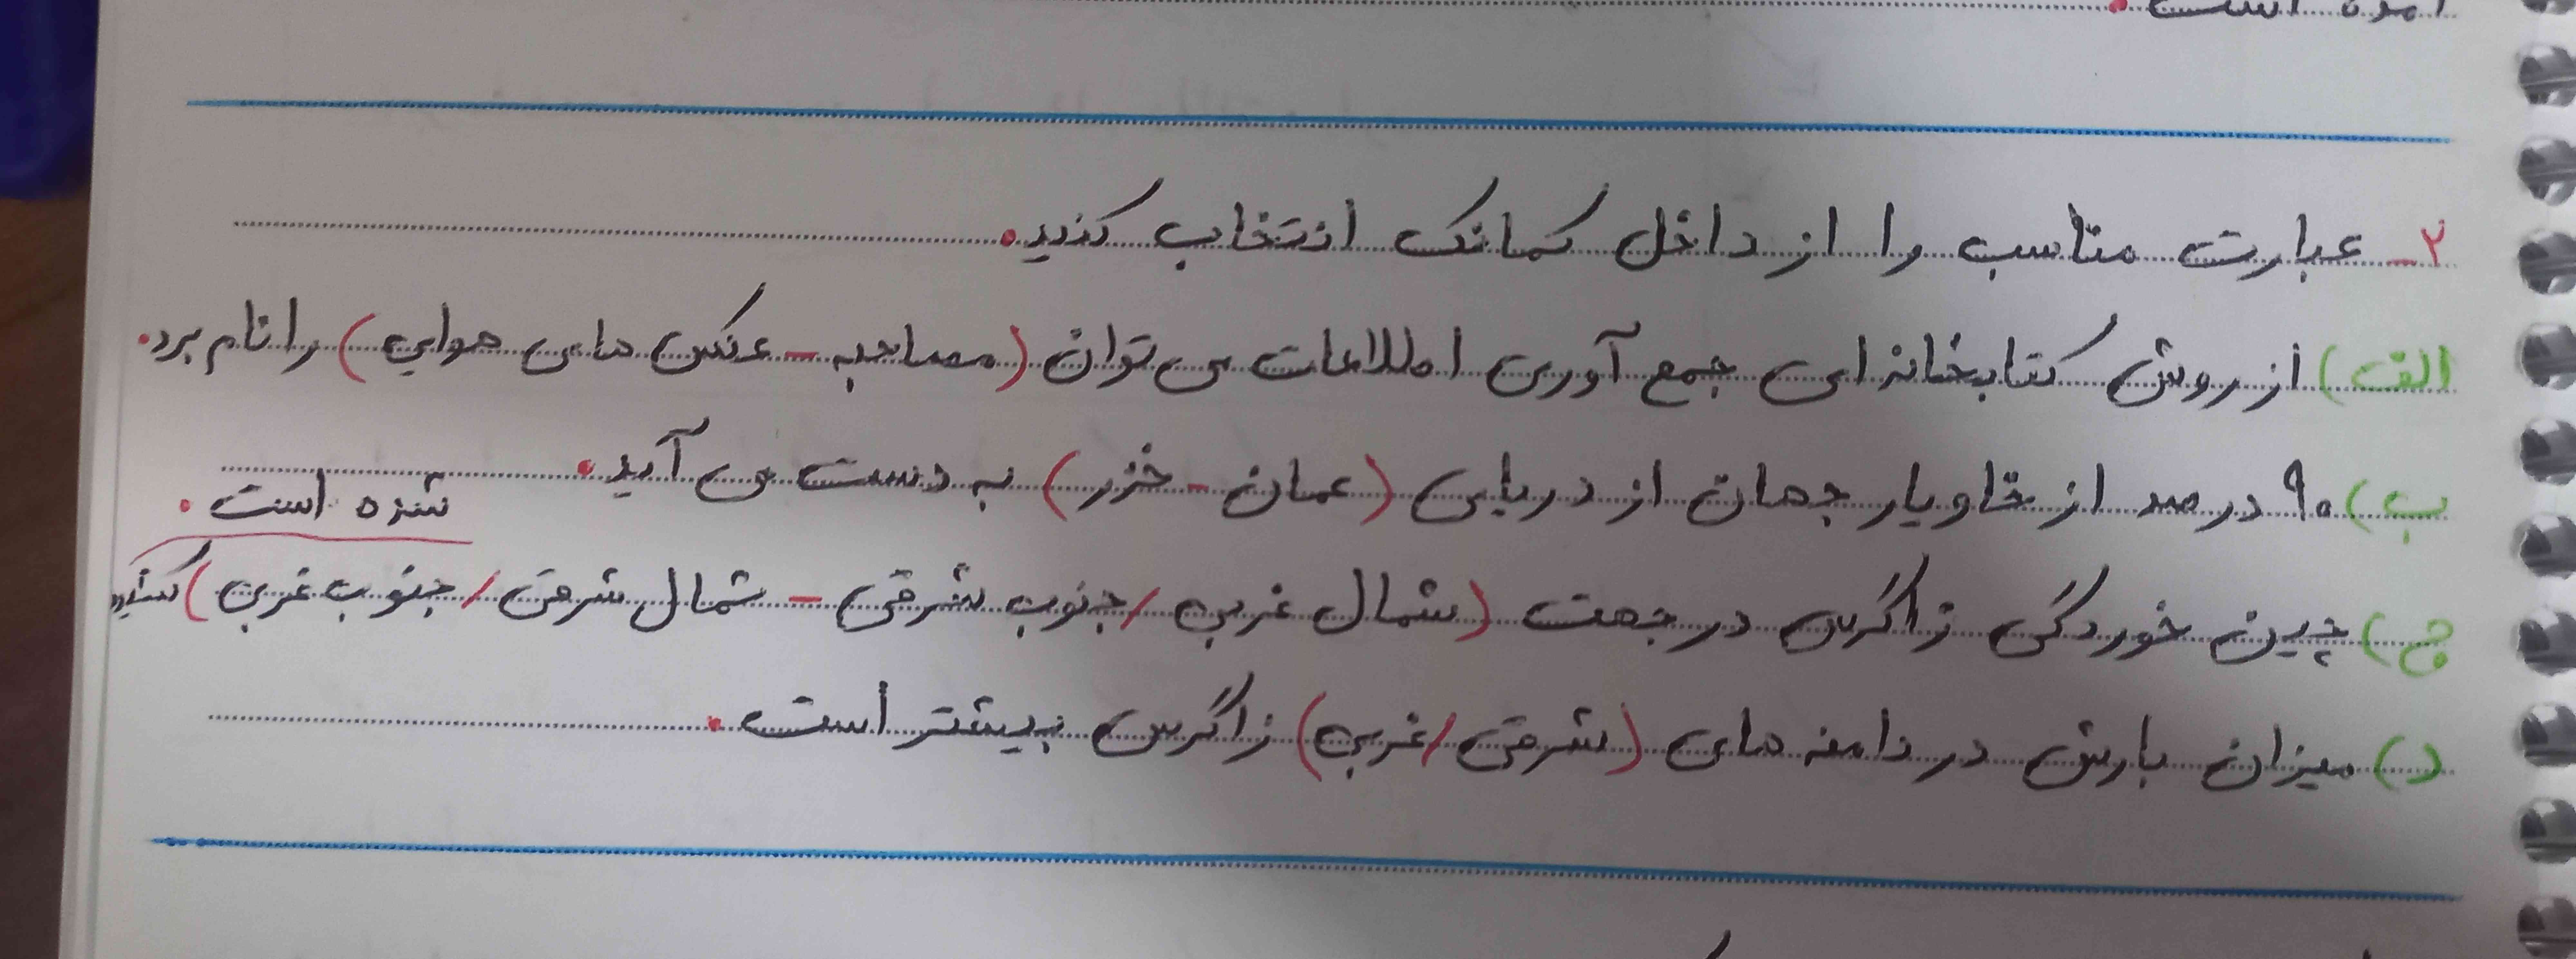 ۲- عبارت مناسب را از داخل کمانک انتخاب کنید.
الف) از روش کتابخانه ای جمع آوری اطلاعات می توان (مصاحبه - عکس های هوایی) را نام برد.
ب) ۹۰ درصد از خاویار جهان از دریایی (عمان - خزر) به دست می آید.
ج) چین خوردگی زاگرس در جهت (شمال غربی / جنوب شرقی - شمال شرقی / جنوب غربی) کشیده
شده است.
د) میزان بارش در دامنه های (شرقی / غربی) زاگرس بیشتر است.